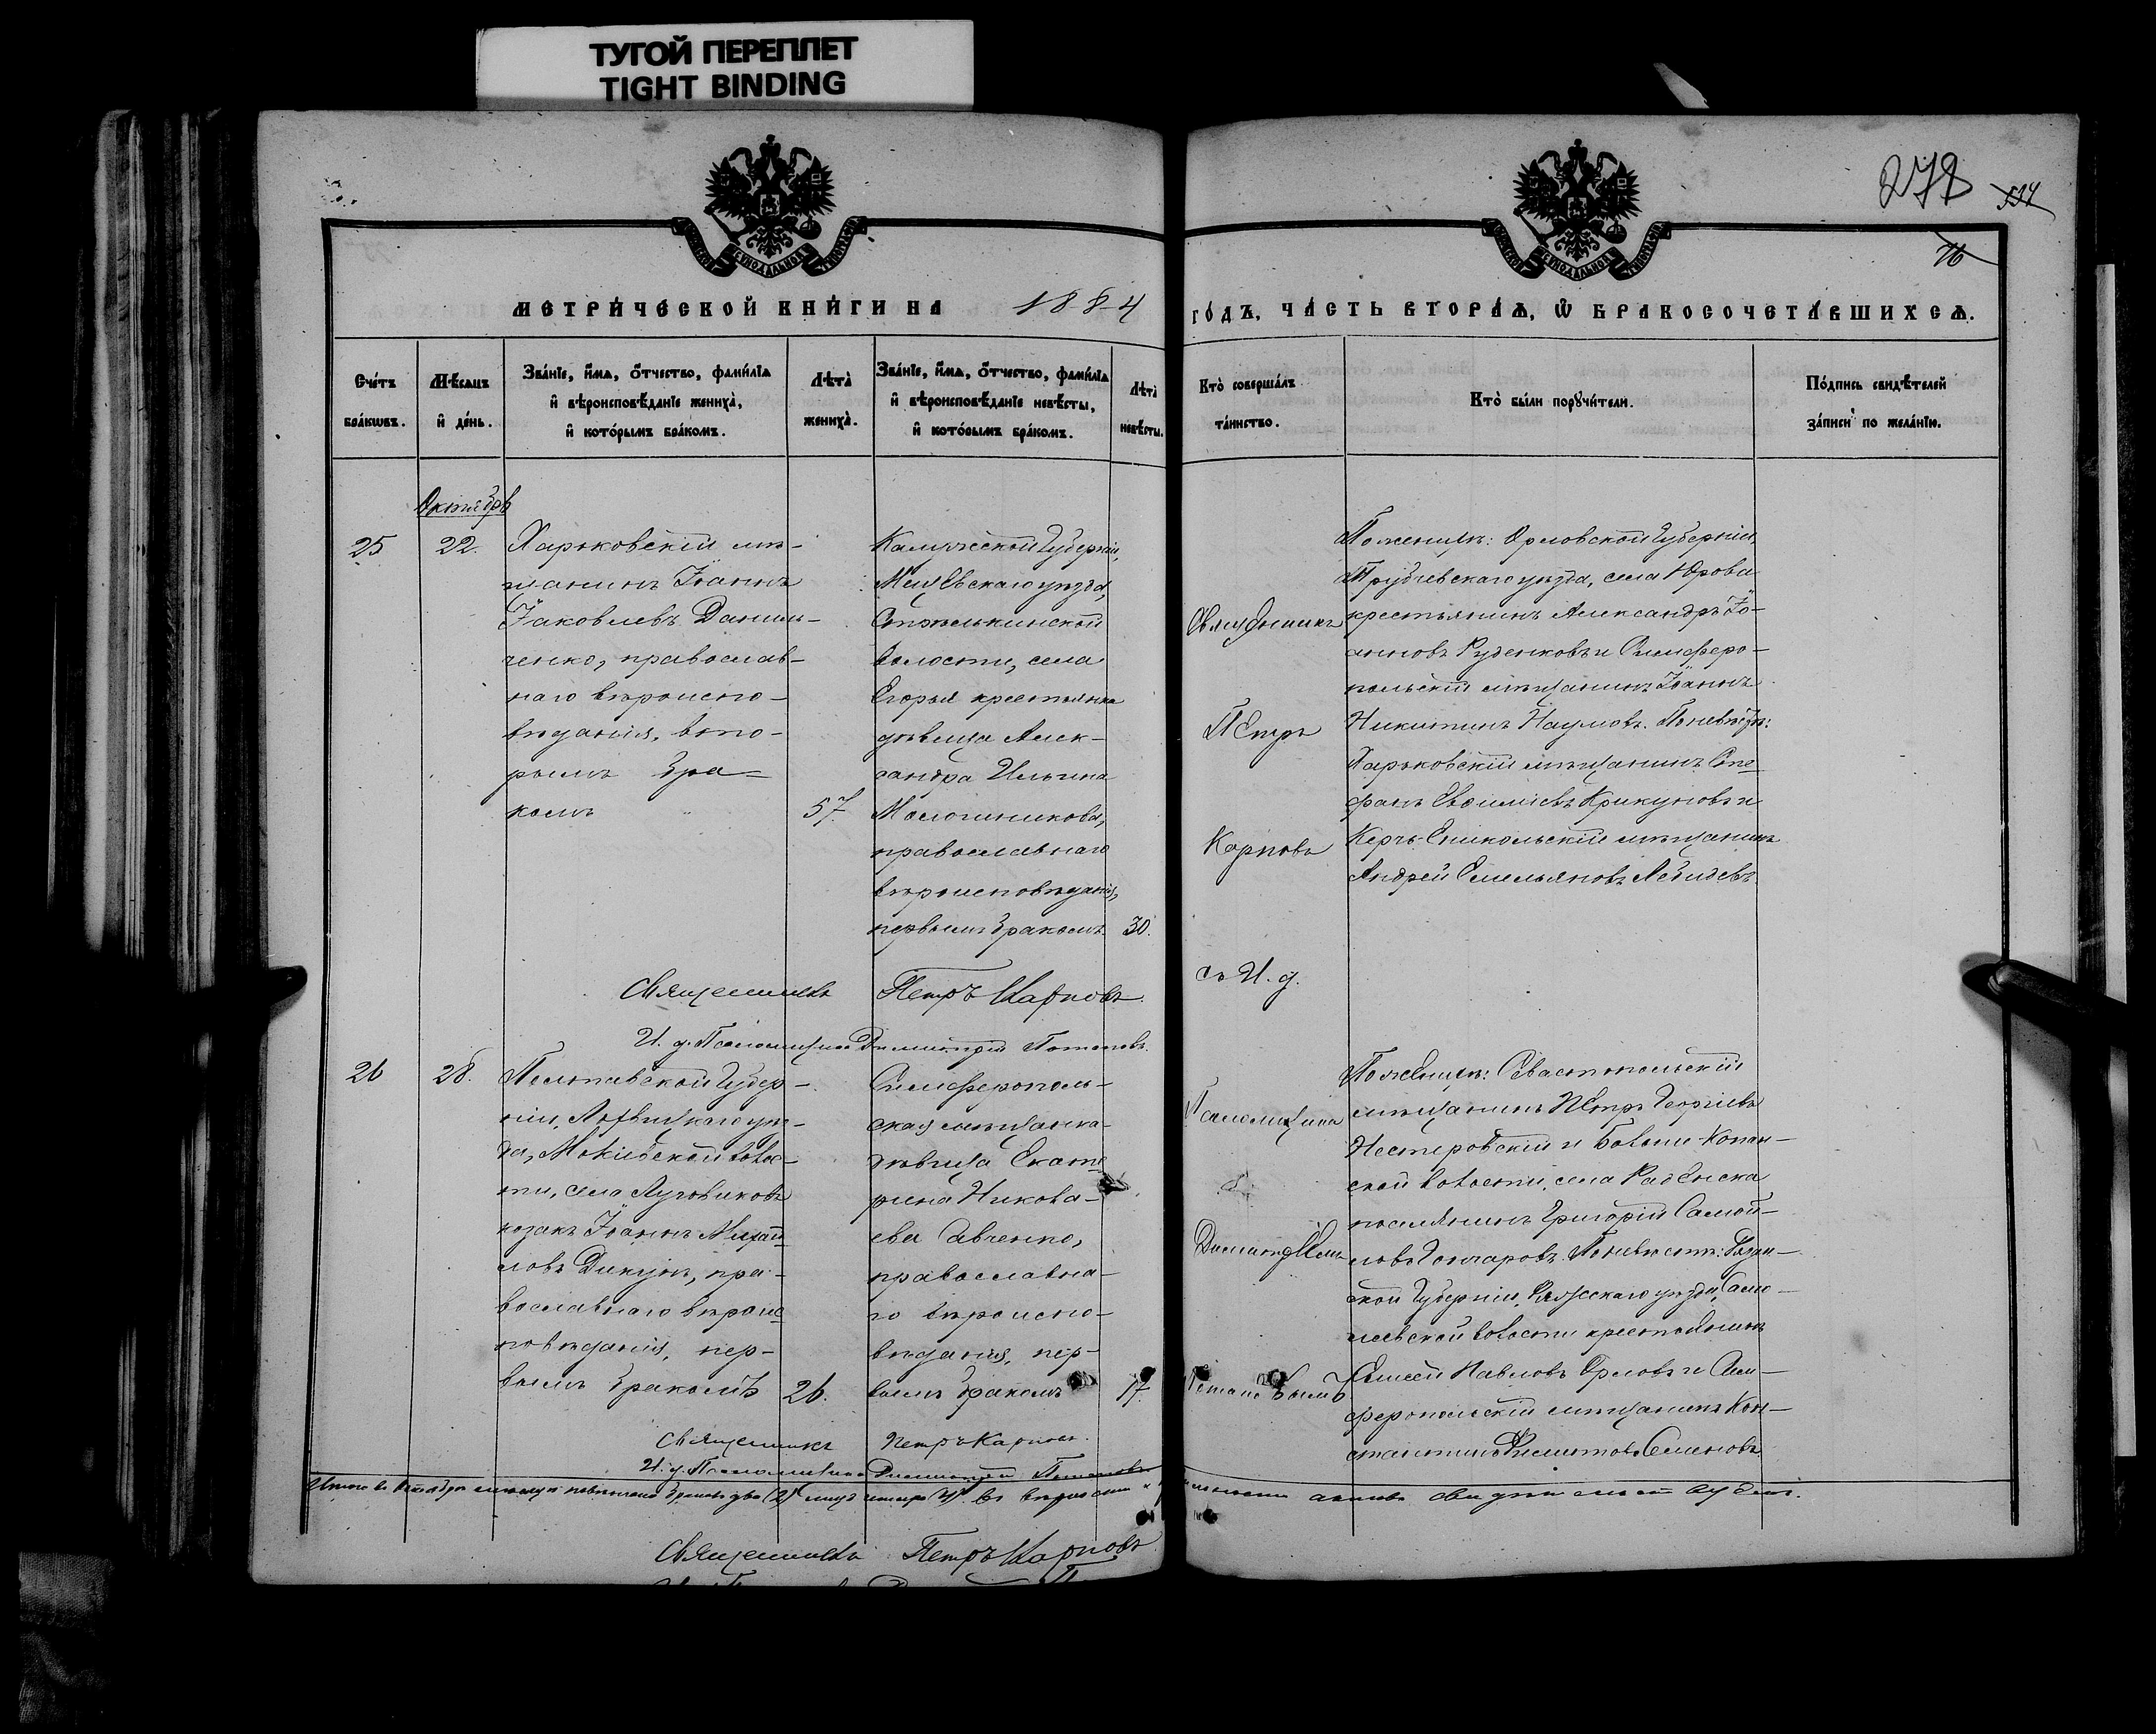 ТУГОЙ ПЕРЕПЛЕТ
TIGHT BINDING
278
534
76
МЕТРИЧЕСКОЙ КНИГИ НА 1884
ГОДЪ, ЧАСТЬ ВТОРАѦ, Ѡ БРАКОСОЧЕТАВШИХСѦ.
Счётъ бра́кѡвъ.
Мѣ́сѧцъ и҆ де́нь.
Зва́нїе, и҆́мѧ, ѻ҆́тчество, фами́лїѧ
и҆ вѣроисповѣ́данїе жениха̀,
и҆ кото́рымъ бра́комъ.
Лѣта̀ жениха̀.
Зва́нїе, и҆́мѧ, ѻ҆́тчество, фами́лїѧ
и҆ вѣроисповѣ́данїе невѣ́сты,
и҆ кото́рымъ бра́комъ.
Лѣта̀ невѣ́сты.
Кто̀ соверша́лъ та́инство.
Кто̀ бы́ли порꙋчи́тели.
По́дпись свидѣ́телей
за́писи по жела́нїю.
Октябрь
25
22.
Харьковскій мѣ-
щанинъ Іоаннъ
Іаковлевъ Даниль-
ченко, православ-
наго вѣроиспо-
вѣданія, вто-
рымъ бра-
комъ
57.
Калужской Губерніи,
Мещевскаго уѣзда,
волости, села
Егорья крестьянка
дѣвица Алек-
сандра Ильина
православнаго
вѣроисповѣданія,
первымъ бракомъ.
30.
Священникъ
Петръ
Карповъ
съ И. д.
По женихѣ: Орловской Губерніи,
Трубчевскаго уѣзда, села Юрова
крестьянинъ Александръ Іо-
анновъ Руденковъ и Симферо-
польскій мѣщанинъ Іоаннъ
Никитинъ Наумовъ. По невѣстѣ:
Харьковскій мѣщанинъ Сте-
фанъ Крикуновъ и
Керчь-Еникольскій мѣщанинъ
Андрей Емельяновъ
Священникъ Петръ Карповъ
И. д. Псаломщика Димитрій Потаповъ.
26
28.
Полтавской Губер-
ніи, Лохвицкаго уѣз-
да, волос-
ти, села Луговиковъ
козакъ Іоаннъ Михаи-
ловъ Дикунъ, пра-
вославнаго вѣроис-
повѣданія, пер-
вымъ бракомъ
26.
Симферополь-
ская мѣщанка
дѣвица Екате-
рина Никола-
ева Савченко,
православна-
го вѣроиспо-
вѣданія, пер-
вымъ бракомъ
17.
Псаломщика
По женихѣ: Севастопольскій
мѣщанинъ Петръ Георгіевъ
Нестеровскій и Больше-Копан-
ской волости, села Раденска
поселянинъ Григорій Самой-
ловъ Гончаровъ. По невѣстѣ: Рязан-
ской Губерніи, Ряжскаго уѣзда,
волости крестьянинъ
Павловъ Орловъ и Сим-
феропольскій мѣщанинъ Кон-
стантинъ Семеновъ.
Священникъ Петръ Карповъ.
И. д. Псаломщика Димитрій Потаповъ
Итого в Октябрѣ мѣсяцѣ повѣнчано браковъ два (2) лицъ четыре (4).
Священникъ Петръ Карповъ